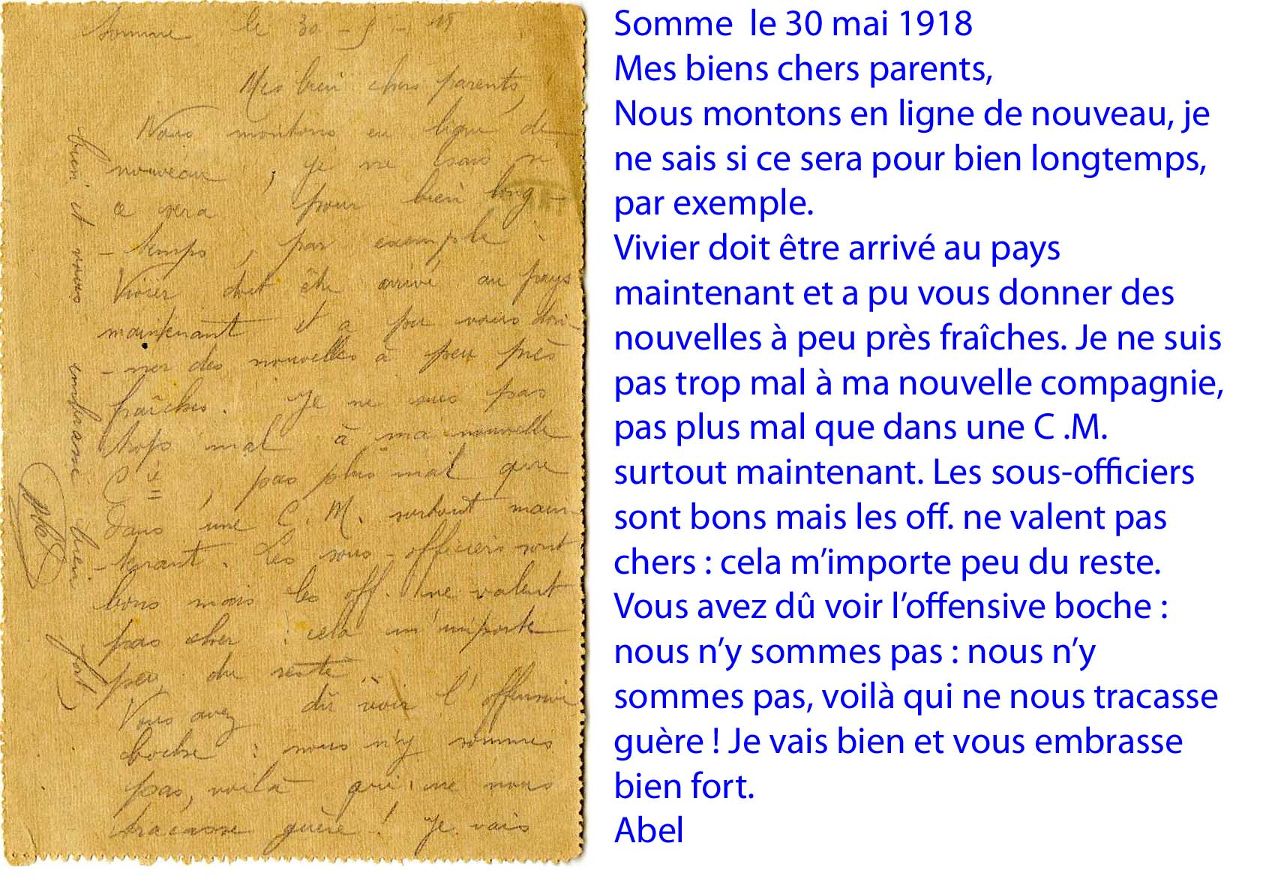 Somme le 30 - 5 - 18
Mes bien chers parents,
Nous montons en ligne de
nouveau, je ne sais si
ce sera pour bien long-
-temps, par exemple.
Vivier doit être arrivé au pays
maintenant et a pu vous don-
-ner des nouvelles à peu près
fraîches. Je ne suis pas
trop mal à ma nouvelle
Cie, pas plus mal que
dans une C. M. surtout main-
tenant. Les sous-officiers sont
bons mais les off. ne valent
pas cher : cela m'importe
peu du reste.
Vous avez dû voir l'offensive
boche : nous n'y sommes
pas, voilà qui ne nous
tracasse guère ! Je vais
bien et vous embrasse bien fort
Abel
Somme le 30 mai 1918
Mes biens chers parents,
Nous montons en ligne de nouveau, je
ne sais si ce sera pour bien longtemps,
par exemple.
Vivier doit être arrivé au pays
maintenant et a pu vous donner des
nouvelles à peu près fraîches. Je ne suis
pas trop mal à ma nouvelle compagnie,
pas plus mal que dans une C .M.
surtout maintenant. Les sous-officiers
sont bons mais les off. ne valent pas
chers : cela m’importe peu du reste.
Vous avez dû voir l’offensive boche :
nous n’y sommes pas : nous n’y
sommes pas, voilà qui ne nous tracasse
guère ! Je vais bien et vous embrasse
bien fort.
Abel